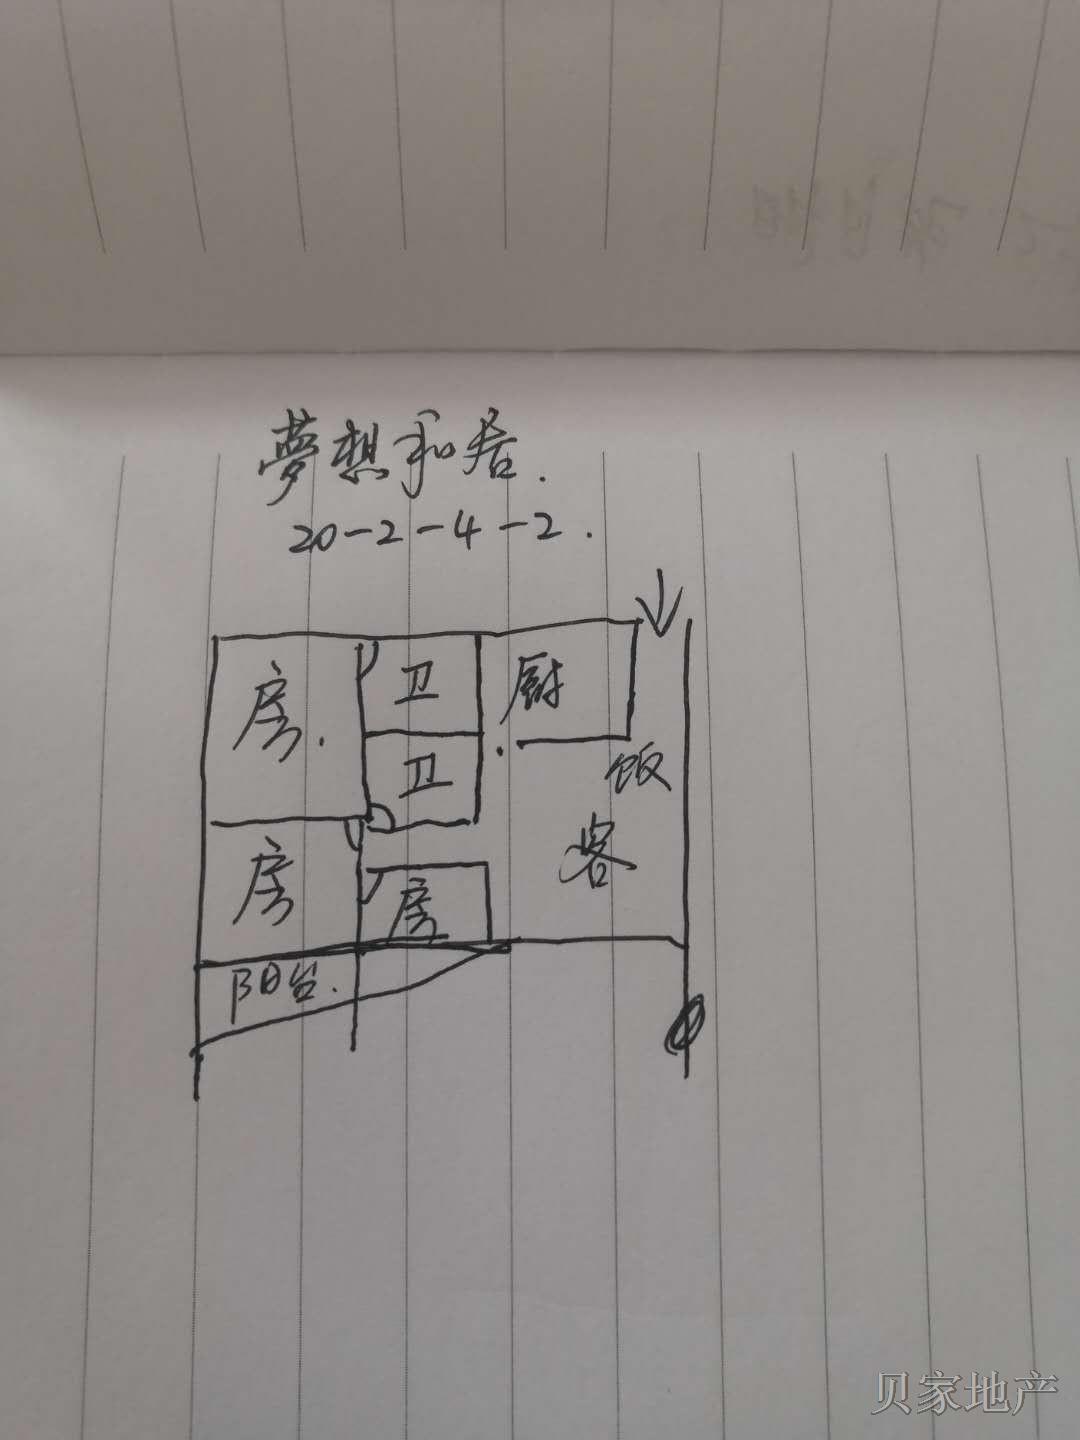 夢想和居.
20-2-4-2.
房.
卫
厨
卫
饭
客
房
房
阳台.
贝家地产